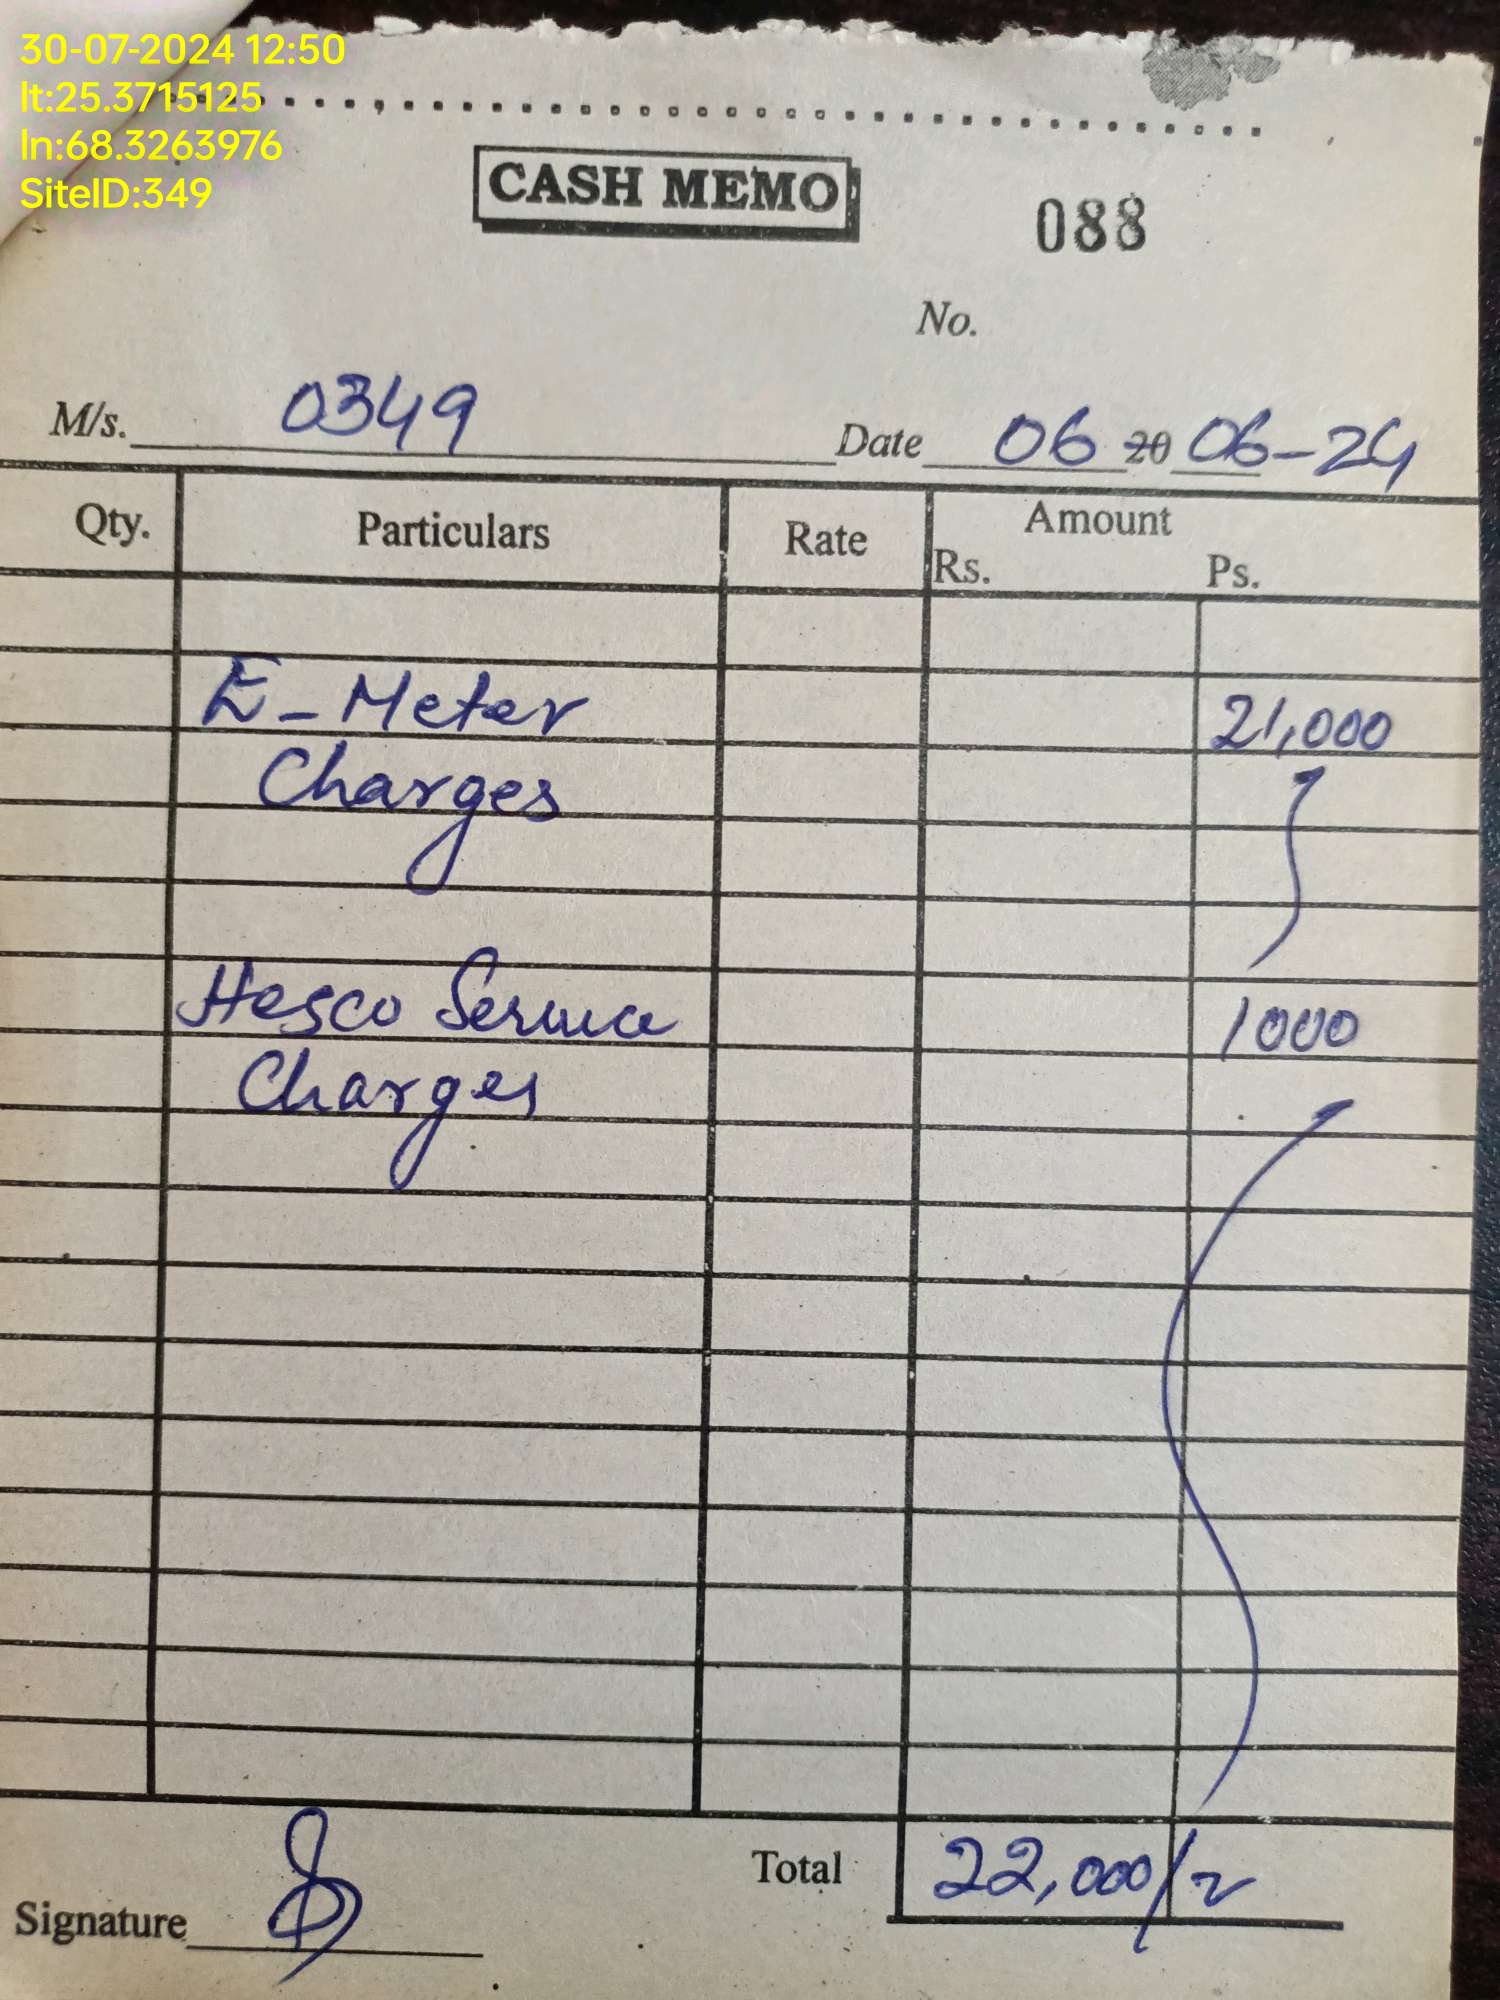 30-07-2024 12:50
lt:25.3715125
ln:68.3263976
SiteID:349
CASH MEMO
088
No.
M/s. 0349 Date 06 20 06-24
Qty. Particulars Rate Amount
Rs. Ps.
E-Meter 21,000
Charges
Hesco Service 1000
Charges
Total 22,000/-
Signature